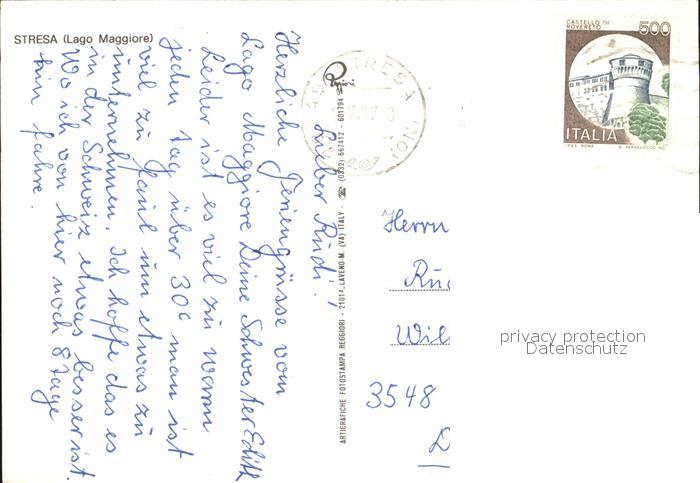 STRESA (Lago Maggiore)
Lieber Rudi!
Herzliche Feriengrüsse vom
Lago Maggiore Deine Schwester Edith
Leider ist es viel zu warm
jeden Tag über 30° man ist
viel zu faul um etwas zu
unternehmen. Ich hoffe das es
in der Schweiz etwas besser ist.
Wo ich von hier noch 8 Tage
hin fahre.
Reggiori
ARTIGRAFICHE FOTOSTAMPA REGGIORI - 21014 LAVENO-M. (VA) ITALY - ☎ (0332) 667412 - 601794
STRESA (NO)
CASTELLO DI
ROVERETO
500
ITALIA
I.P.Z.S. ROMA
E. VERDELOCCO INC.
Herrn
Rud
Wil
3548
D
privacy protection
Datenschutz